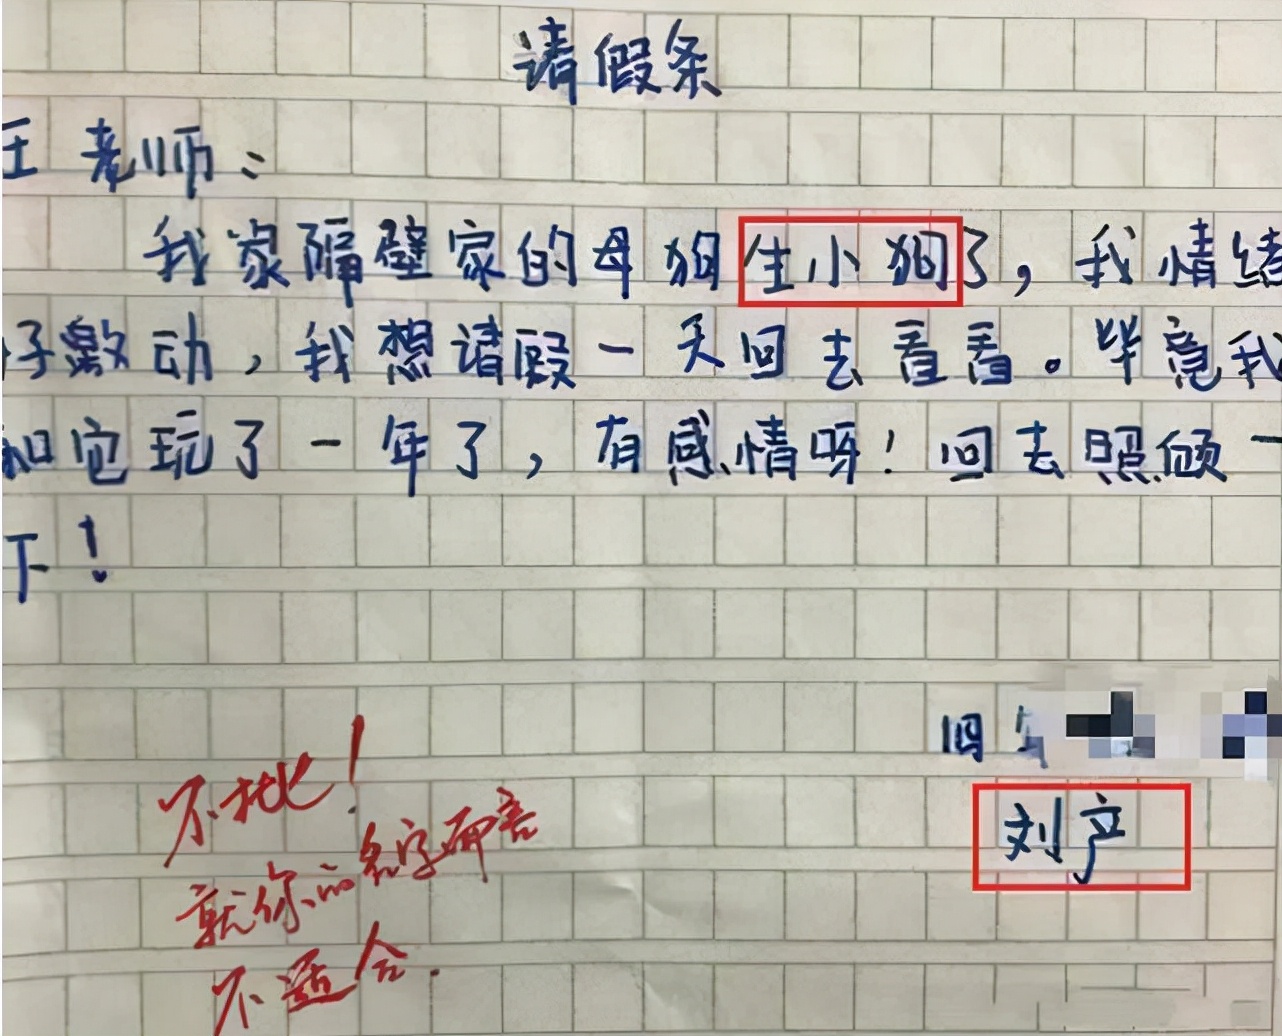 请假条
王老师：
我家隔壁家的母狗生小狗了，我情绪
好激动，我想请假一天回去看看。毕竟我
和它玩了一年了，有感情呀！回去照顾一
下！
四年
刘产
不批！
就你的名字而言
不适合.